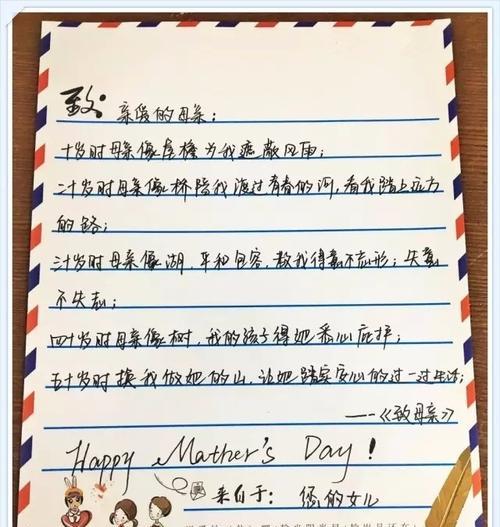 致 亲爱的母亲：
十岁时母亲像房檐为我遮蔽风雨；
二十岁时母亲像桥陪我渡过青春的河，看我踏上远方
的路；
三十岁时母亲像湖，平和包容，教我得意不忘形；失意
不失志；
四十岁时母亲像树，我的孩子得她悉心庇护；
五十岁时换我做她的山，让她踏实安心的过一过生活；
——《致母亲》
Happy Mather's Day！
来自于：您的女儿